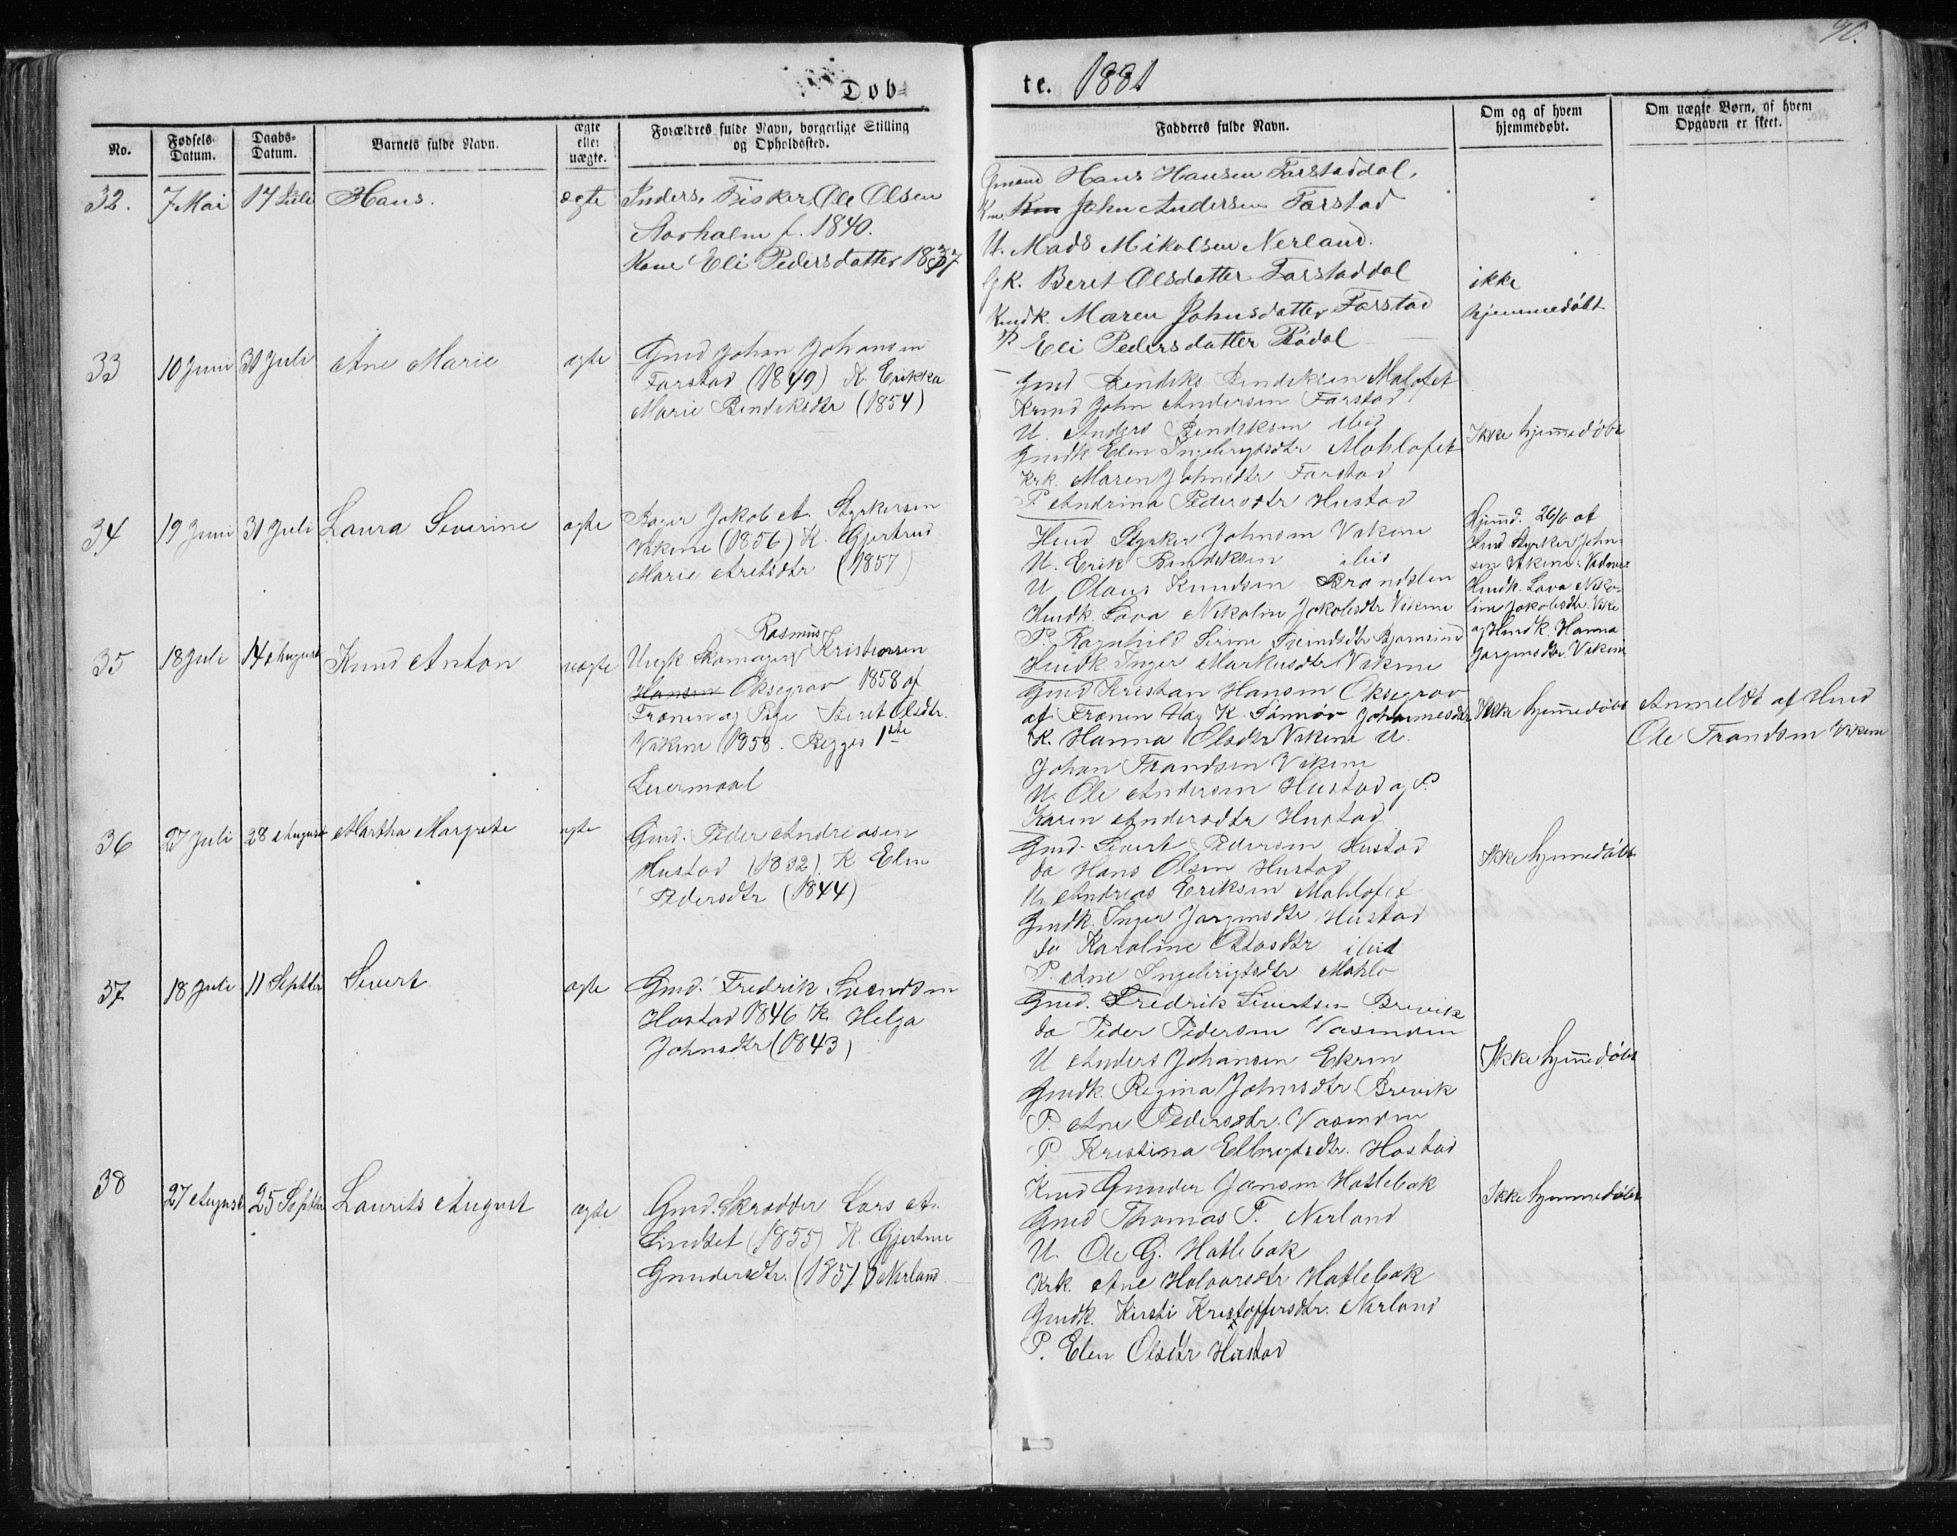 90.
Døb=
te. 1881
No.
Fødsels-
Datum.
Daabs-
Datum.
Barnets fulde Navn.
ægte
eller
uægte.
Forældres fulde Navn, borgerlige Stilling
og Opholdssted.
Fadderes fulde Navn.
Om og af hvem
hjemmedøbt.
Om uægte Børn, af hvem
Opgaven er skeet.
32. 7 Mai 17 Juli Hans. ægte
Inders. Fisker Ole Olsen
Aarholm f. 1840.
Kone Eli Pedersdatter 1837
Gmand Hans Hansen Farstaddal,
Km. John Andersen Farstad
U. Mads Mikalsen Nerland.
Gk. Beret Olsdatter Farstaddal
Kmdk. Maren Johnsdatter Farstad
P Eli Pedersdatter Rødal
ikke
hjemmedøbt
33 10 Juni 31 Juli Ane Marie ægte
Gmd Johan Johansen
Farstad (1849) K. Erikka
Marie Bendiksdtr (1854)
Gmd Bendiks Bendiksen Malofet
Krmd John Andersen Farstad
U. Anders Bendiksen ibid
Gmdk Elen Ingebrigtsdtr Mahlofet
Krk. Maren Johnsdtr Farstad
P. Andrina Pedersdtr Hustad
Ikke hjemedøbt
34 19 Juni 31 Juli Laura Severine ægte
Bager Jakob A. Styrkersen
Vikene (1856) K. Gjertrud
Marie Aretsdtr (1857)
Hmd Styrker Johnsen Vikene
U. Erik Bendiksen ibid
U Olaus Knudsen Brandslen
Hmdk. Lava Nikoline Jakobsdtr Vikene
P. Ragnhild Serine Trondsdtr Bjørnsund
Hmdk Inger Markusdtr Vikene
Hjemd. 26/6 af
Hmd Styrker John-
sen Vikene. Vidner
Hmdk. Lava Niko-
line Jakobsdtr. Vike
og Hmdk. Hanna
Jørgensdtr. Vikene
35 18 Juli 14 August Knud Anton uægte
Rasmus
Ungk Skomager Kristiansen
Hansen Oksegrov 1858 af
Frænen og Pige Beret Olsdtr.
Vikene 1858. Begges 1ste
Leiermaal
Gmd Kristian Hansen Oksegrov
af Frænen og K. Sønnøv Johannesdtr
K. Hanna Olsdtr Vikene U.
Johan Frandsen Vikene
U. Ole Andersen Hustad og P.
Karen Andersdtr Hustad
Ikke hjemedøbt
Anmeldt af Hmd
Ole Frandsen Vikene
36 27 Juli 28 August Martha Margrete ægte
Gmd. Peder Andreasen
Hustad (1832). K Elen
Pedersdtr (1844)
Gmd. Sivert Pedersen Hustad
do Hans Olsen Hustad
U. Andreas Eriksen Mahlofet
Gmdk Inger Jørgensdtr Hustad
do Karoline Olasdtr ibid
P. Ane Ingebrigtsdtr Mahlo
Ikke hjemmedøbt
37 18 Juli 11 Septber Sivert ægte
Gmd. Fredrik Svendsen
Hostad 1846 K. Helga
Johnsdtr (1843)
Gmd. Fredrik Sivertsen Brevik
do Peder Pedersen Vasenden
U Anders Johansen Ekren
Gmdk. Regina Johnsdtr Brevik
P. Ane Pedersdtr. Vasenden
P Kristina Elbrigtsdtr. Hostad
Ikke hjemedøbt
38 27 August 25 Septber Laurits August ægte
Gmd. Skrædder Lars A.
Lindset (1855) K. Gjertine
Gundersdtr. (1851) Nerland
Kmd Gunder Jonsen Hatlebak
Gmd Thomas T. Nerland
U. Ole G. Hatlebak
Krk. Ane Halvorsdtr Hatlebak
Gmdk. Kirsti Kristoffersdtr. Nerland
P. Elen Olsdtr Hustad
Ikke hjemmedøbt